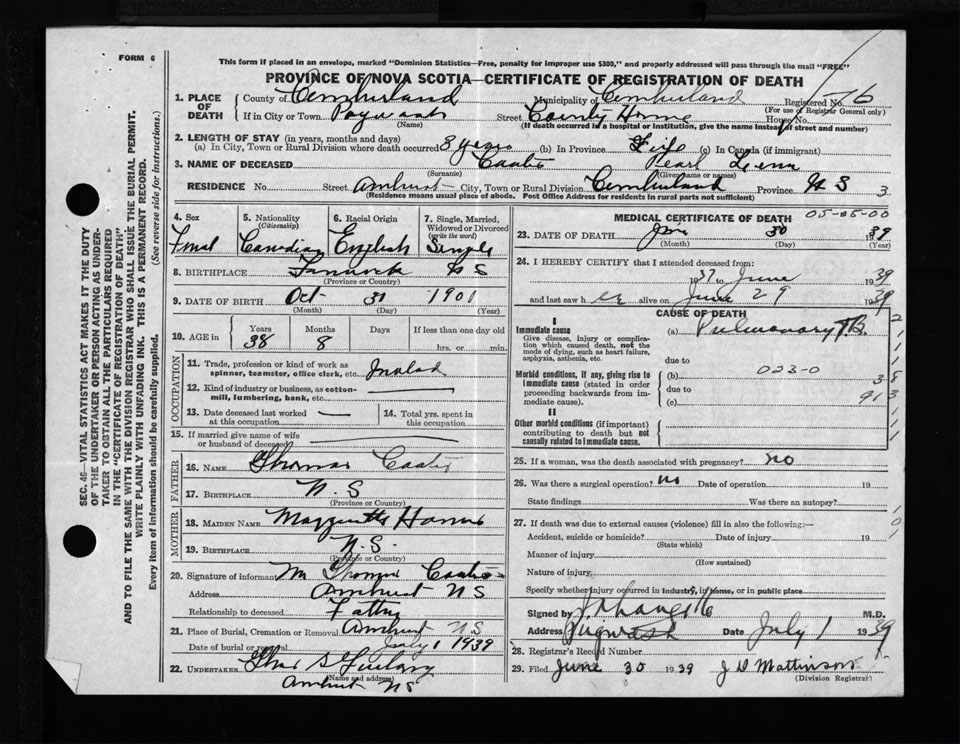 FORM 6
This form if placed in an envelope, marked "Dominion Statistics—Free, penalty for improper use $300," and properly addressed will pass through the mail "FREE"
PROVINCE OF NOVA SCOTIA—CERTIFICATE OF REGISTRATION OF DEATH
1. PLACE OF DEATH { County of Cumberland Municipality of Cumberland Registered No. 76
(For use of Registrar General only)
If in City or Town Pugwash Street County Home House No.
(Name) (If death occurred in a hospital or institution, give the name instead of street and number)
2. LENGTH OF STAY (in years, months and days)
(a) In City, Town or Rural Division where death occurred 8 years (b) In Province Life (c) In Canada (if immigrant)
3. NAME OF DECEASED Coates Pearl
(Surname) (Given name or names)
RESIDENCE No. Street Amherst City, Town or Rural Division Cumberland Province N S 3
(Residence means usual place of abode. Post Office Address for residents in rural parts not sufficient)
SEC. 46—VITAL STATISTICS ACT MAKES IT THE DUTY
OF THE UNDERTAKER OR PERSON ACTING AS UNDER-
TAKER TO OBTAIN ALL THE PARTICULARS REQUIRED
IN THE "CERTIFICATE OF REGISTRATION OF DEATH"
AND TO FILE THE SAME WITH THE DIVISION REGISTRAR WHO SHALL ISSUE THE BURIAL PERMIT.
WRITE PLAINLY WITH UNFADING INK. THIS IS A PERMANENT RECORD.
Every item of information should be carefully supplied. (See reverse side for instructions.)
4. Sex 5. Nationality 6. Racial Origin 7. Single, Married,
(Citizenship) Widowed or Divorced
(write the word)
Female Canadian English Single
8. BIRTHPLACE N S
(Province or Country)
9. DATE OF BIRTH Oct 31 1901
(Month) (Day) (Year)
10. AGE in { Years Months Days If less than one day old
38 8 hrs. or min.
OCCUPATION
11. Trade, profession or kind of work as
spinner, teamster, office clerk, etc. Invalid
12. Kind of industry or business, as cotton-
mill, lumbering, bank, etc.
13. Date deceased last worked 14. Total yrs. spent in
at this occupation this occupation
15. If married give name of wife
or husband of deceased
FATHER
16. NAME Thomas Coates
17. BIRTHPLACE N. S
(Province or Country)
MOTHER
18. MAIDEN NAME
19. BIRTHPLACE N. S.
(Province or Country)
20. Signature of informant Mr Thomas Coates
Address Amherst N S
Relationship to deceased Father
21. Place of Burial, Cremation or Removal Amherst N S
Date of burial or removal July 1 1939
22. UNDERTAKER
(Name and address)
Amherst N S
MEDICAL CERTIFICATE OF DEATH 05-05-00
23. DATE OF DEATH June 30 1939
(Month) (Day) (Year)
24. I HEREBY CERTIFY that I attended deceased from:
1937 to June 1939
and last saw her alive on June 29 1939
CAUSE OF DEATH
I
Immediate cause (a) Pulmonary TB.
Give disease, injury or complica-
tion which caused death, not the
mode of dying, such as heart failure,
asphyxia, asthenia, etc. due to
Morbid conditions, if any, giving rise to (b) 023-0
immediate cause (stated in order due to
proceeding backwards from im-
mediate cause). (c)
II
Other morbid conditions (if important)
contributing to death but not
causally related to immediate cause.
25. If a woman, was the death associated with pregnancy? no
26. Was there a surgical operation? no Date of operation 19
State findings Was there an autopsy?
27. If death was due to external causes (violence) fill in also the following:—
Accident, suicide or homicide? Date of injury 19
(State which)
Manner of injury
(How sustained)
Nature of injury
Specify whether injury occurred in Industry, in Home, or in public place
Signed by M.D.
Address Pugwash Date July 1 1939
28. Registrar's Record Number
29. Filed June 30 1939 J D Mattinson
(Division Registrar)